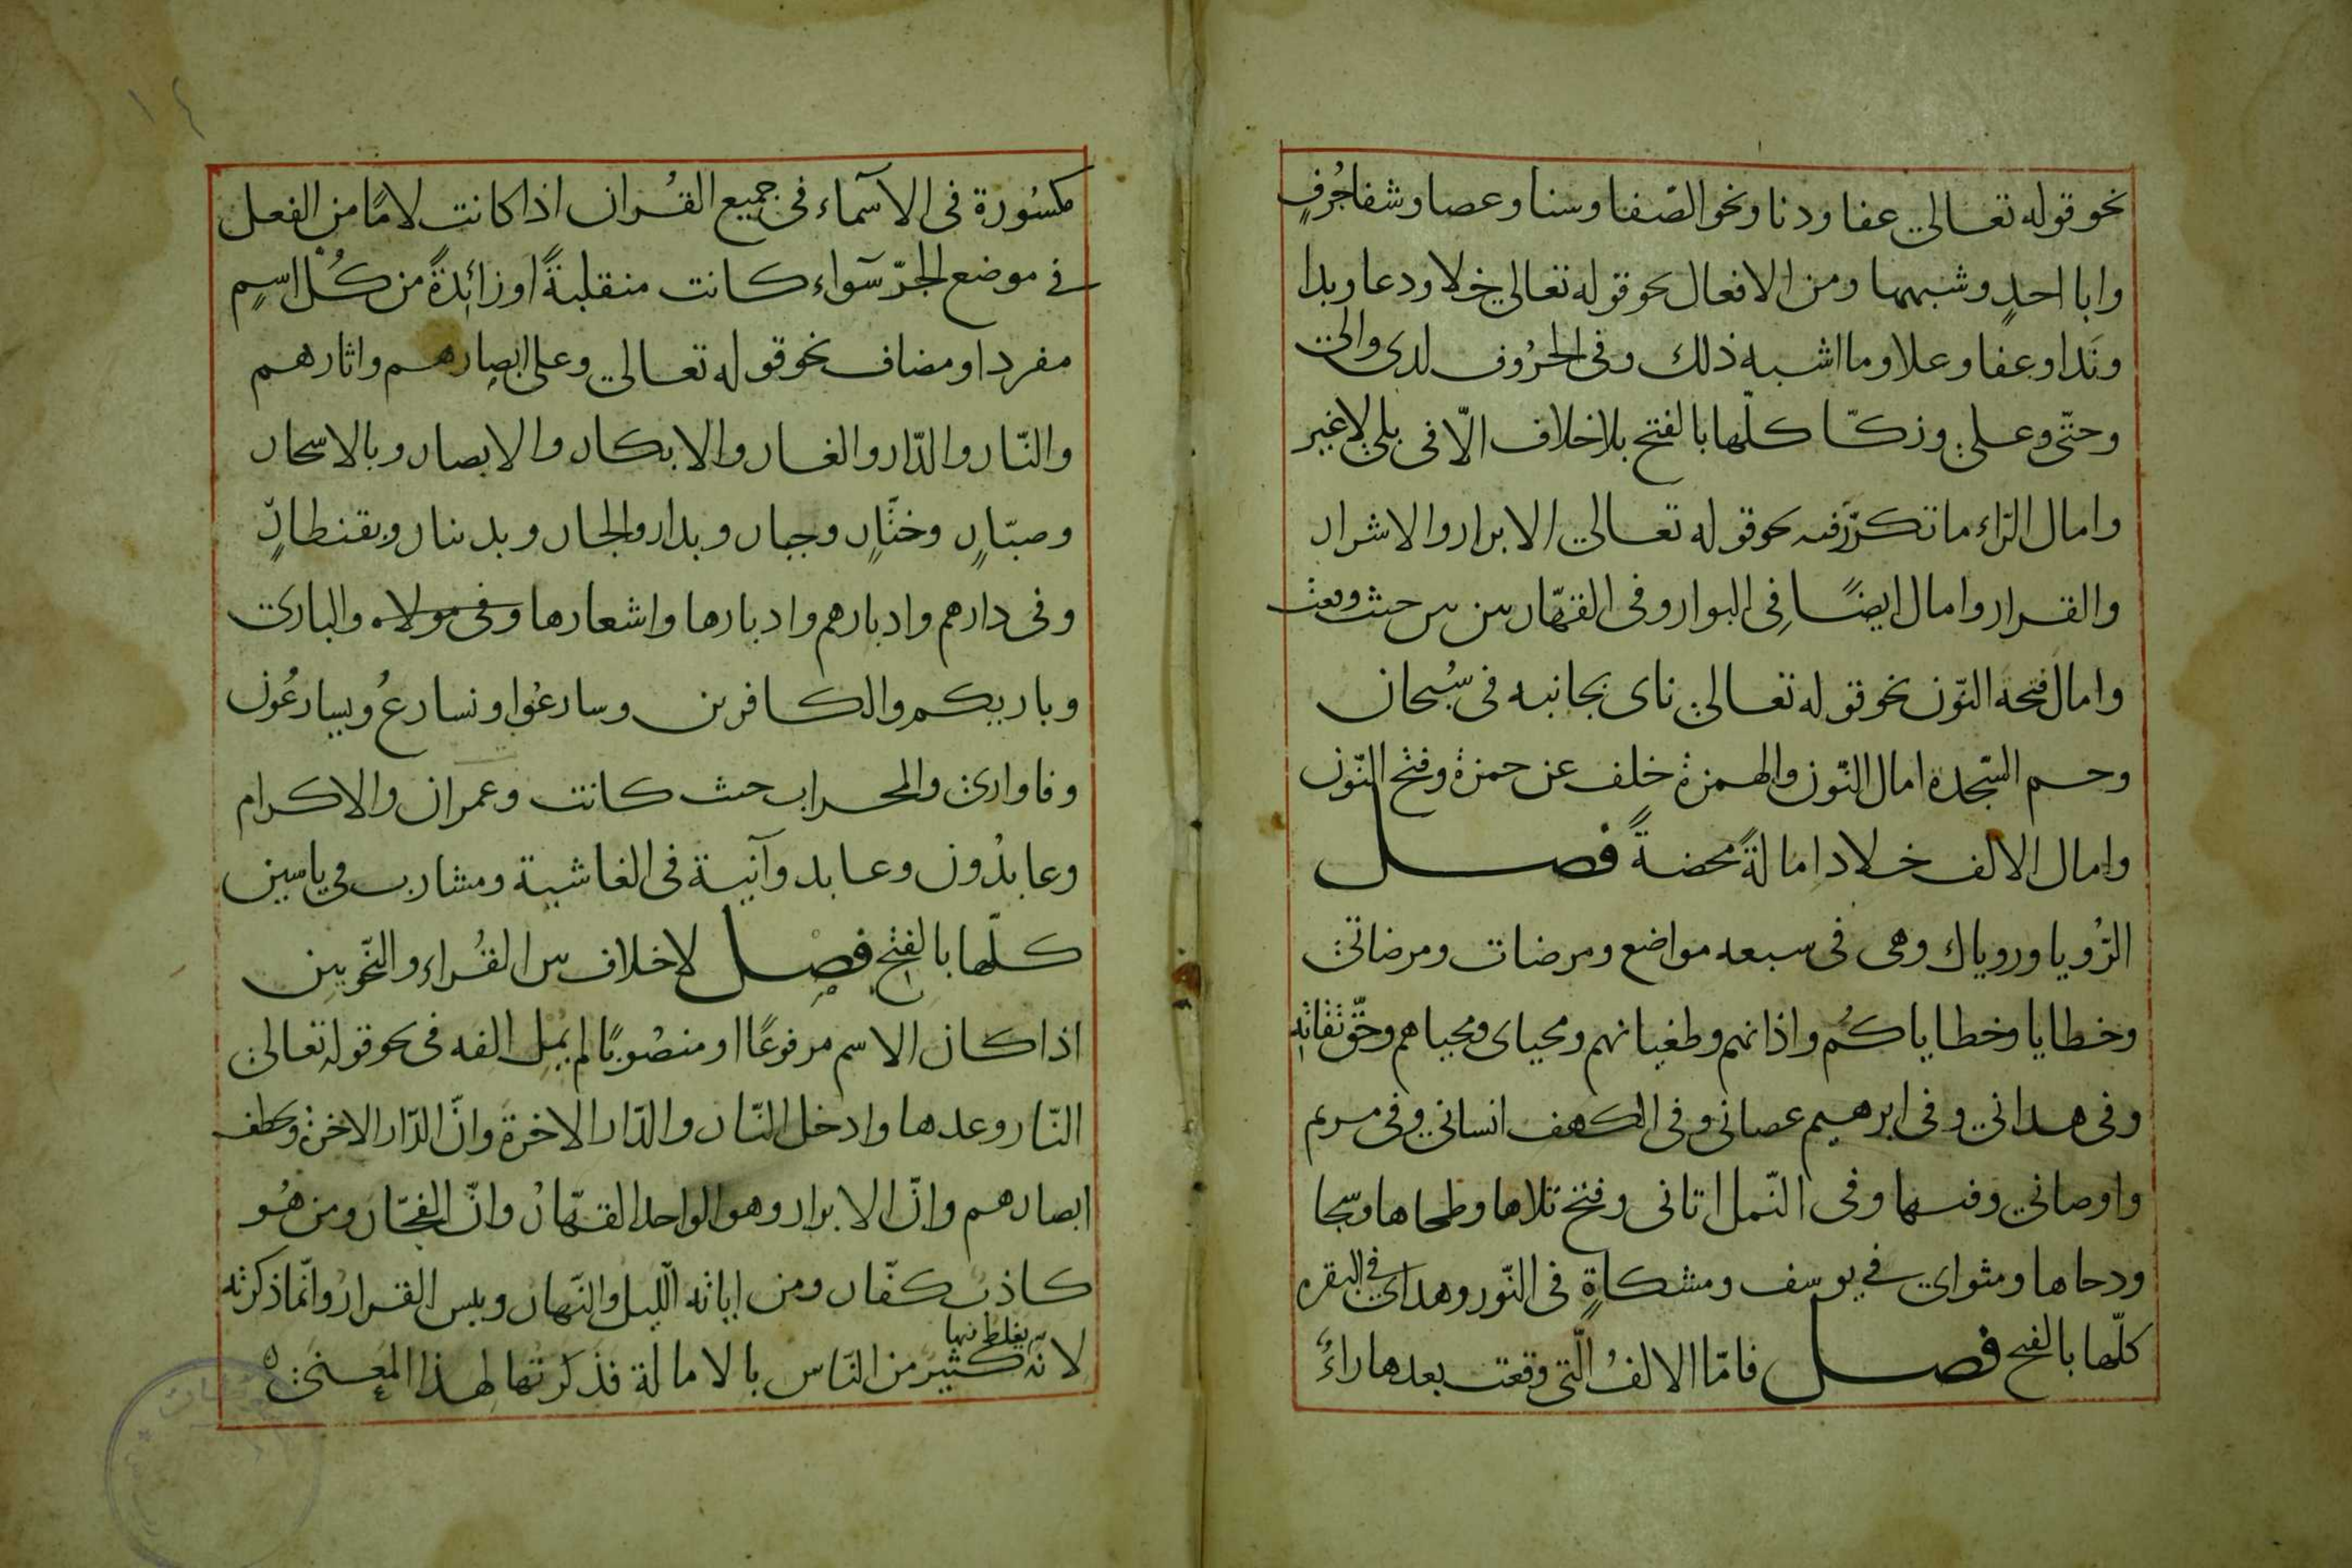 نحو قوله تعالى عفا ودنا ونحو الصّفا وسنا وعصا وشفا جُرُفٍ
وابا احدٍ وشبهها ومن الافعال نحو قوله تعالى خلا ودعا وبدا
ونَدا وعفا وعلا وما اشبه ذلك وفى الحرُوف لدى والى
وحتّى وعلى وزكّا كلّها بالفتح بلا خلاف الّا فى بلى لا غير
وامال الرّاء ما تكرّر فيه نحو قوله تعالى الابرار والاشرار
والقرار وامال ايضًا فِى البوار وفى القهّار حيث
وامال فتحة النّون نحو قوله تعالى ناى بجانبه فى سُبحان
وحم السّجدة امال النّون والهمزة خلف عن حمزة وفتح النّون
وامال الالف خلاد امالةً محضةً فصل
الرُّويا وروياك وهى فى سبعه مواضع ومرضات ومرضاتى
وخطايا وخطاياكُم واذانهم وطغيانهم ومحياى ومحياهم وحقّ تقاته
وفى هدانى وفى ابرهيم عصانى وفى الكهف انسانى وفى مريم
واوصانى وفى النّمل اتانى وفتح تلاها وطحاها وسجا
ودحاها ومثواى فى يوسف ومشكاةٍ فى النّور وهداى فى البقره
كلّها بالفتح فصل فامّا الالفُ الّتى وقعت بعدها راءٌ
مكسُورة فى الاسماء فى جميع القُران اذا كانت لامًا من الفعل
فى موضع الجرّ سَواء كانت منقلبةً او زائدةً من كُلّ اسمٍ
مفرد او مضاف نحو قوله تعالى وعلى ابصارهم واثارهم
والنّار والدّار والغار والابكار والابصار وبالاسحار
وصبّارٍ وختّارٍ وجبار وبدار والجار وبدينار وبقنطارٍ
وفى دارهم وادبارهم وادبارها واشعارها وفى مولاه والبارئ
وباريكم والكافرين وسارعُوا ونسارعُ ويسارعُون
وفاوارى والمحراب حيث كانت وعمران والاكرام
وعابدُون وعابد وآنية فى الغاشية ومشارب فى ياسين
كلّها بالفتح فصل لا خلاف بين القُراء والنّحويين
اذا كان الاسم مرفوعًا او منصُوبًا لم يُمِل الفه فى نحو قوله تعالى
النّار وعدها وادخل النّار والدّار الاخرة وانّ الدّار الاخرة ويخطف
ابصارهم وانّ الابرار وهو الواحد القهّارُ وانّ الفجّار ومن هُو
كاذب كفّار ومن اياته الّليل والنّهار وبيس القرارُ وانّما ذكرته
لانّه يغلط فيها كثير من النّاس بالامالة فذكرتها لهذا المعنى